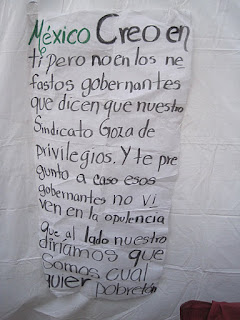 México Creo en
ti pero no en los ne
fastos gobernantes
que dicen que nuestro
Sindicato Goza de
privilegios. Y te pre
gunto a caso esos
gobernantes no vi
ven en la opulencia
que al lado nuestro
diriamos que
Somos cual
quier pobretón